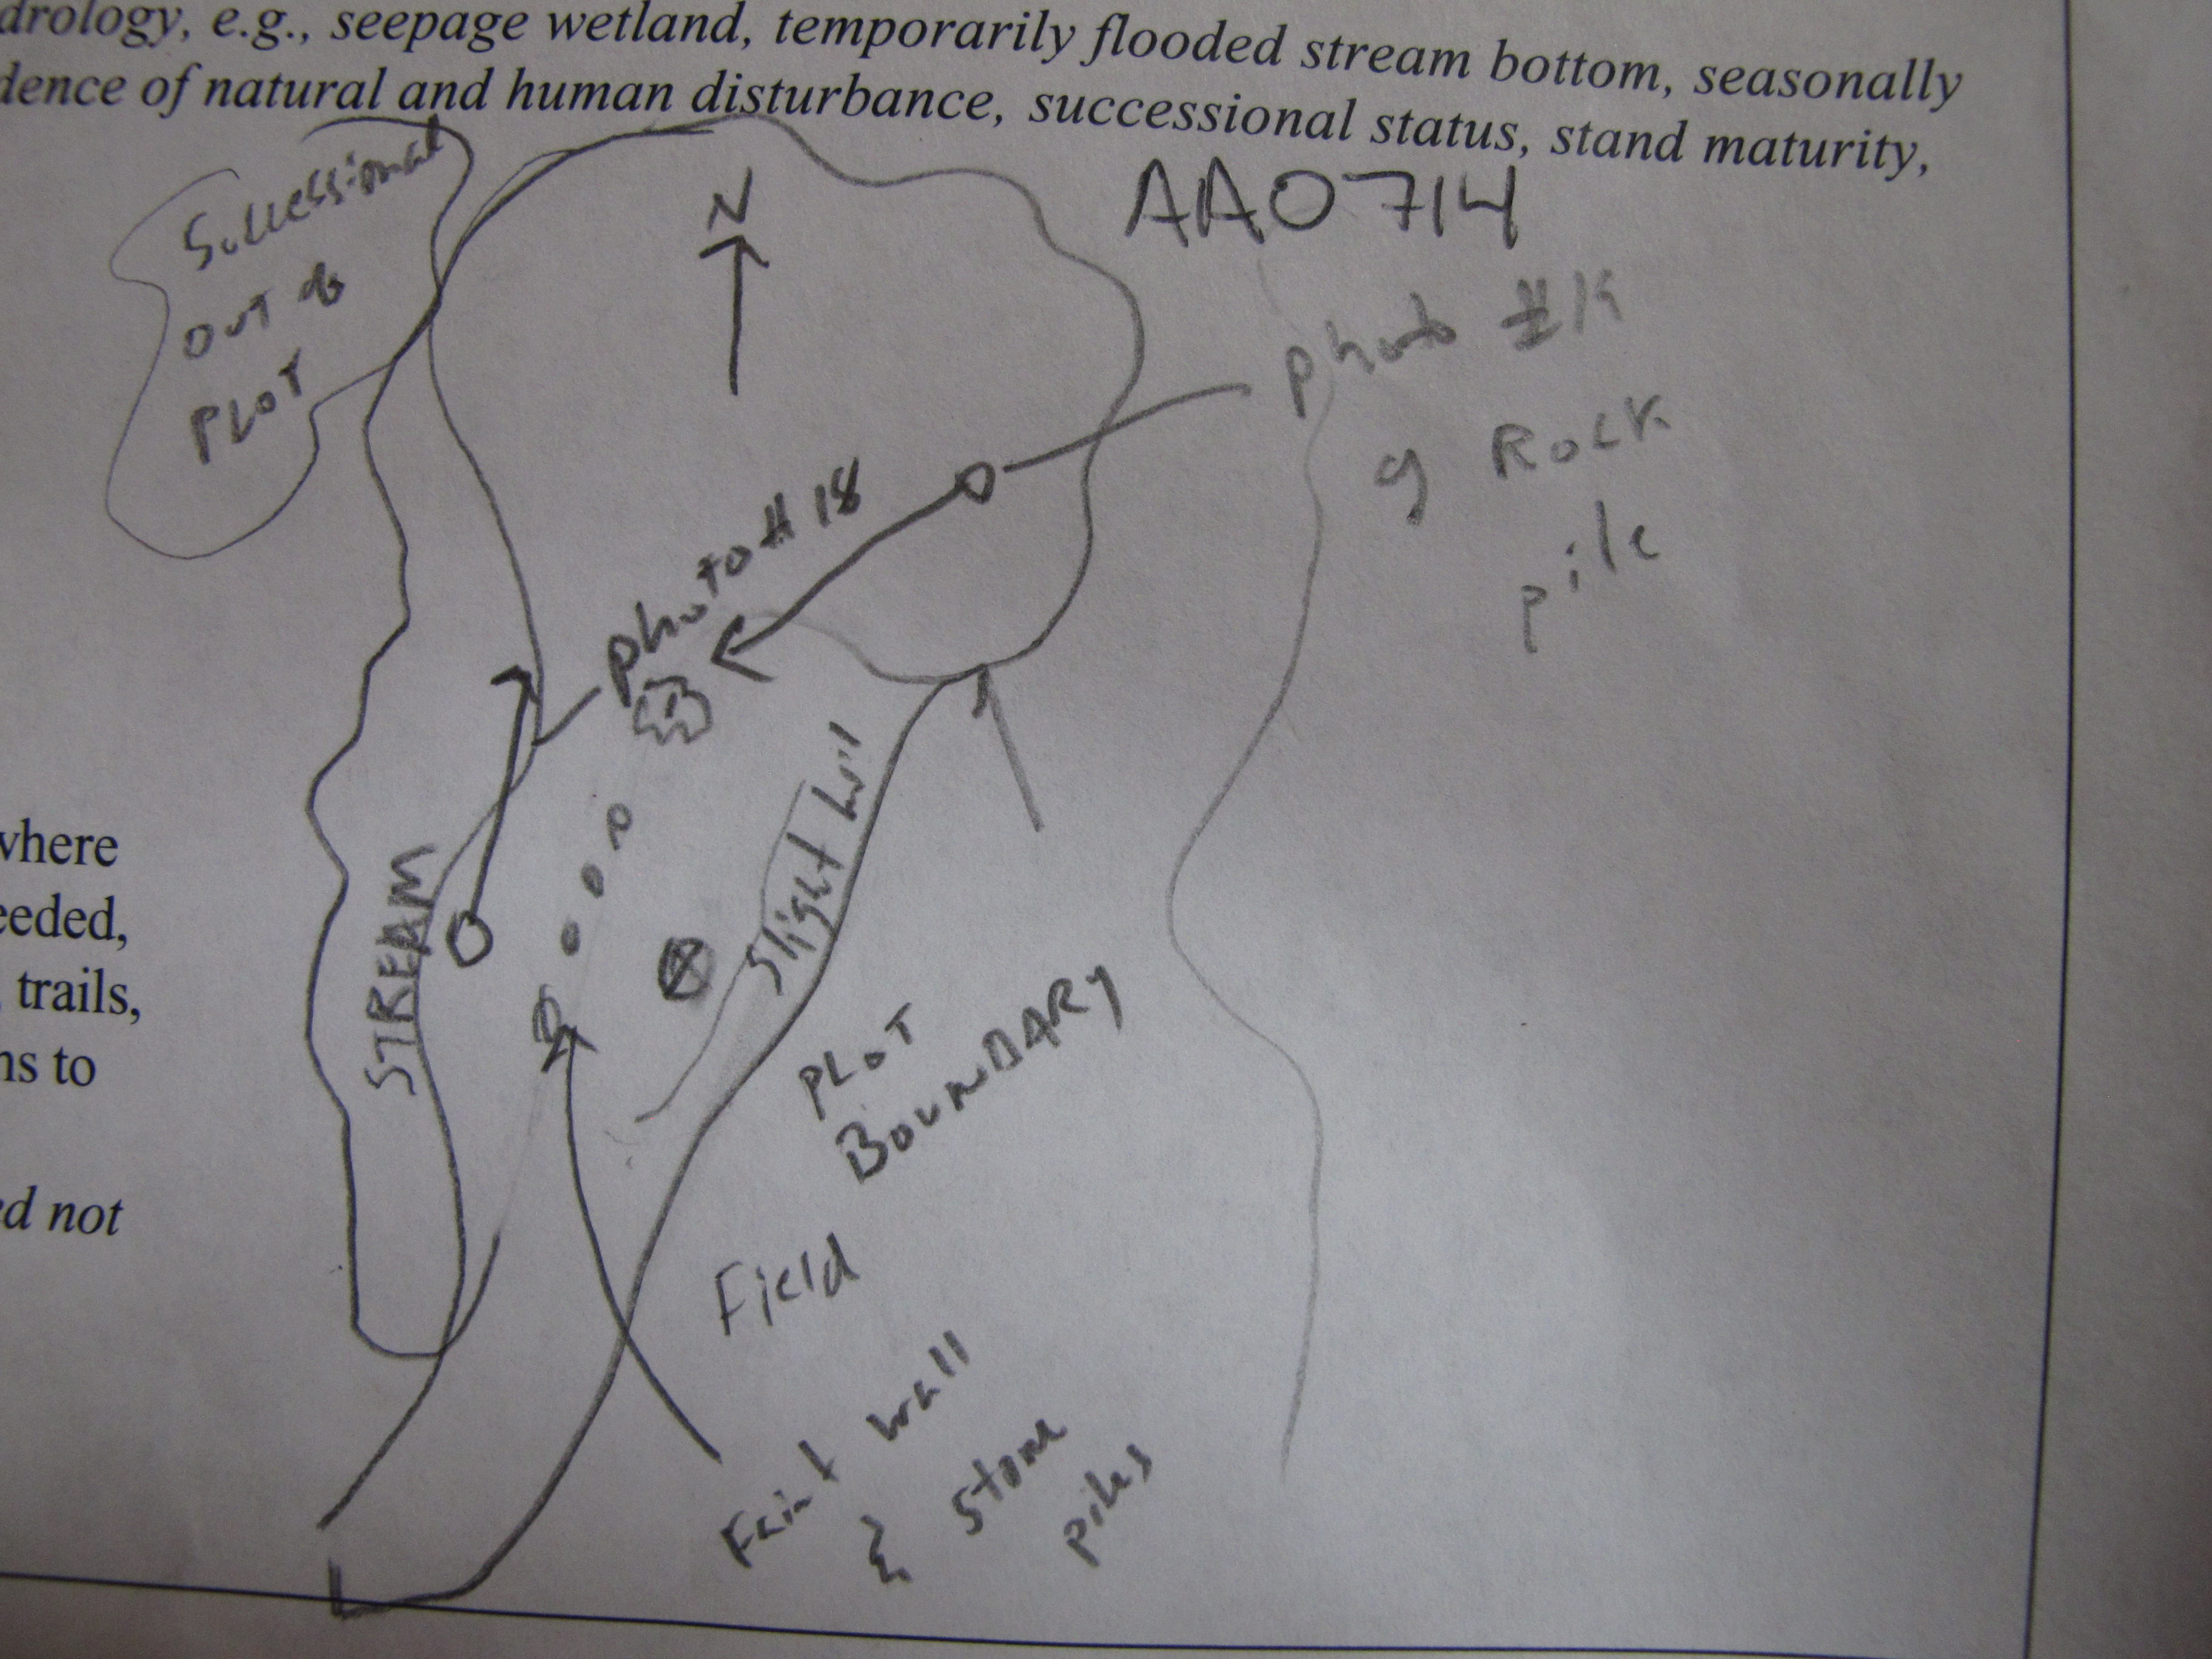 drology, e.g., seepage wetland, temporarily flooded stream bottom, seasonally
dence of natural and human disturbance, successional status, stand maturity,
Successional
OUT of
PLOT
N
AAO714
photo #19
of Rock
pile
photo # 18
STREAM
Slight hill
PLOT
BOUNDARY
Field
Faint wall
& stone
piles
where
eeded,
trails,
ns to
ed not